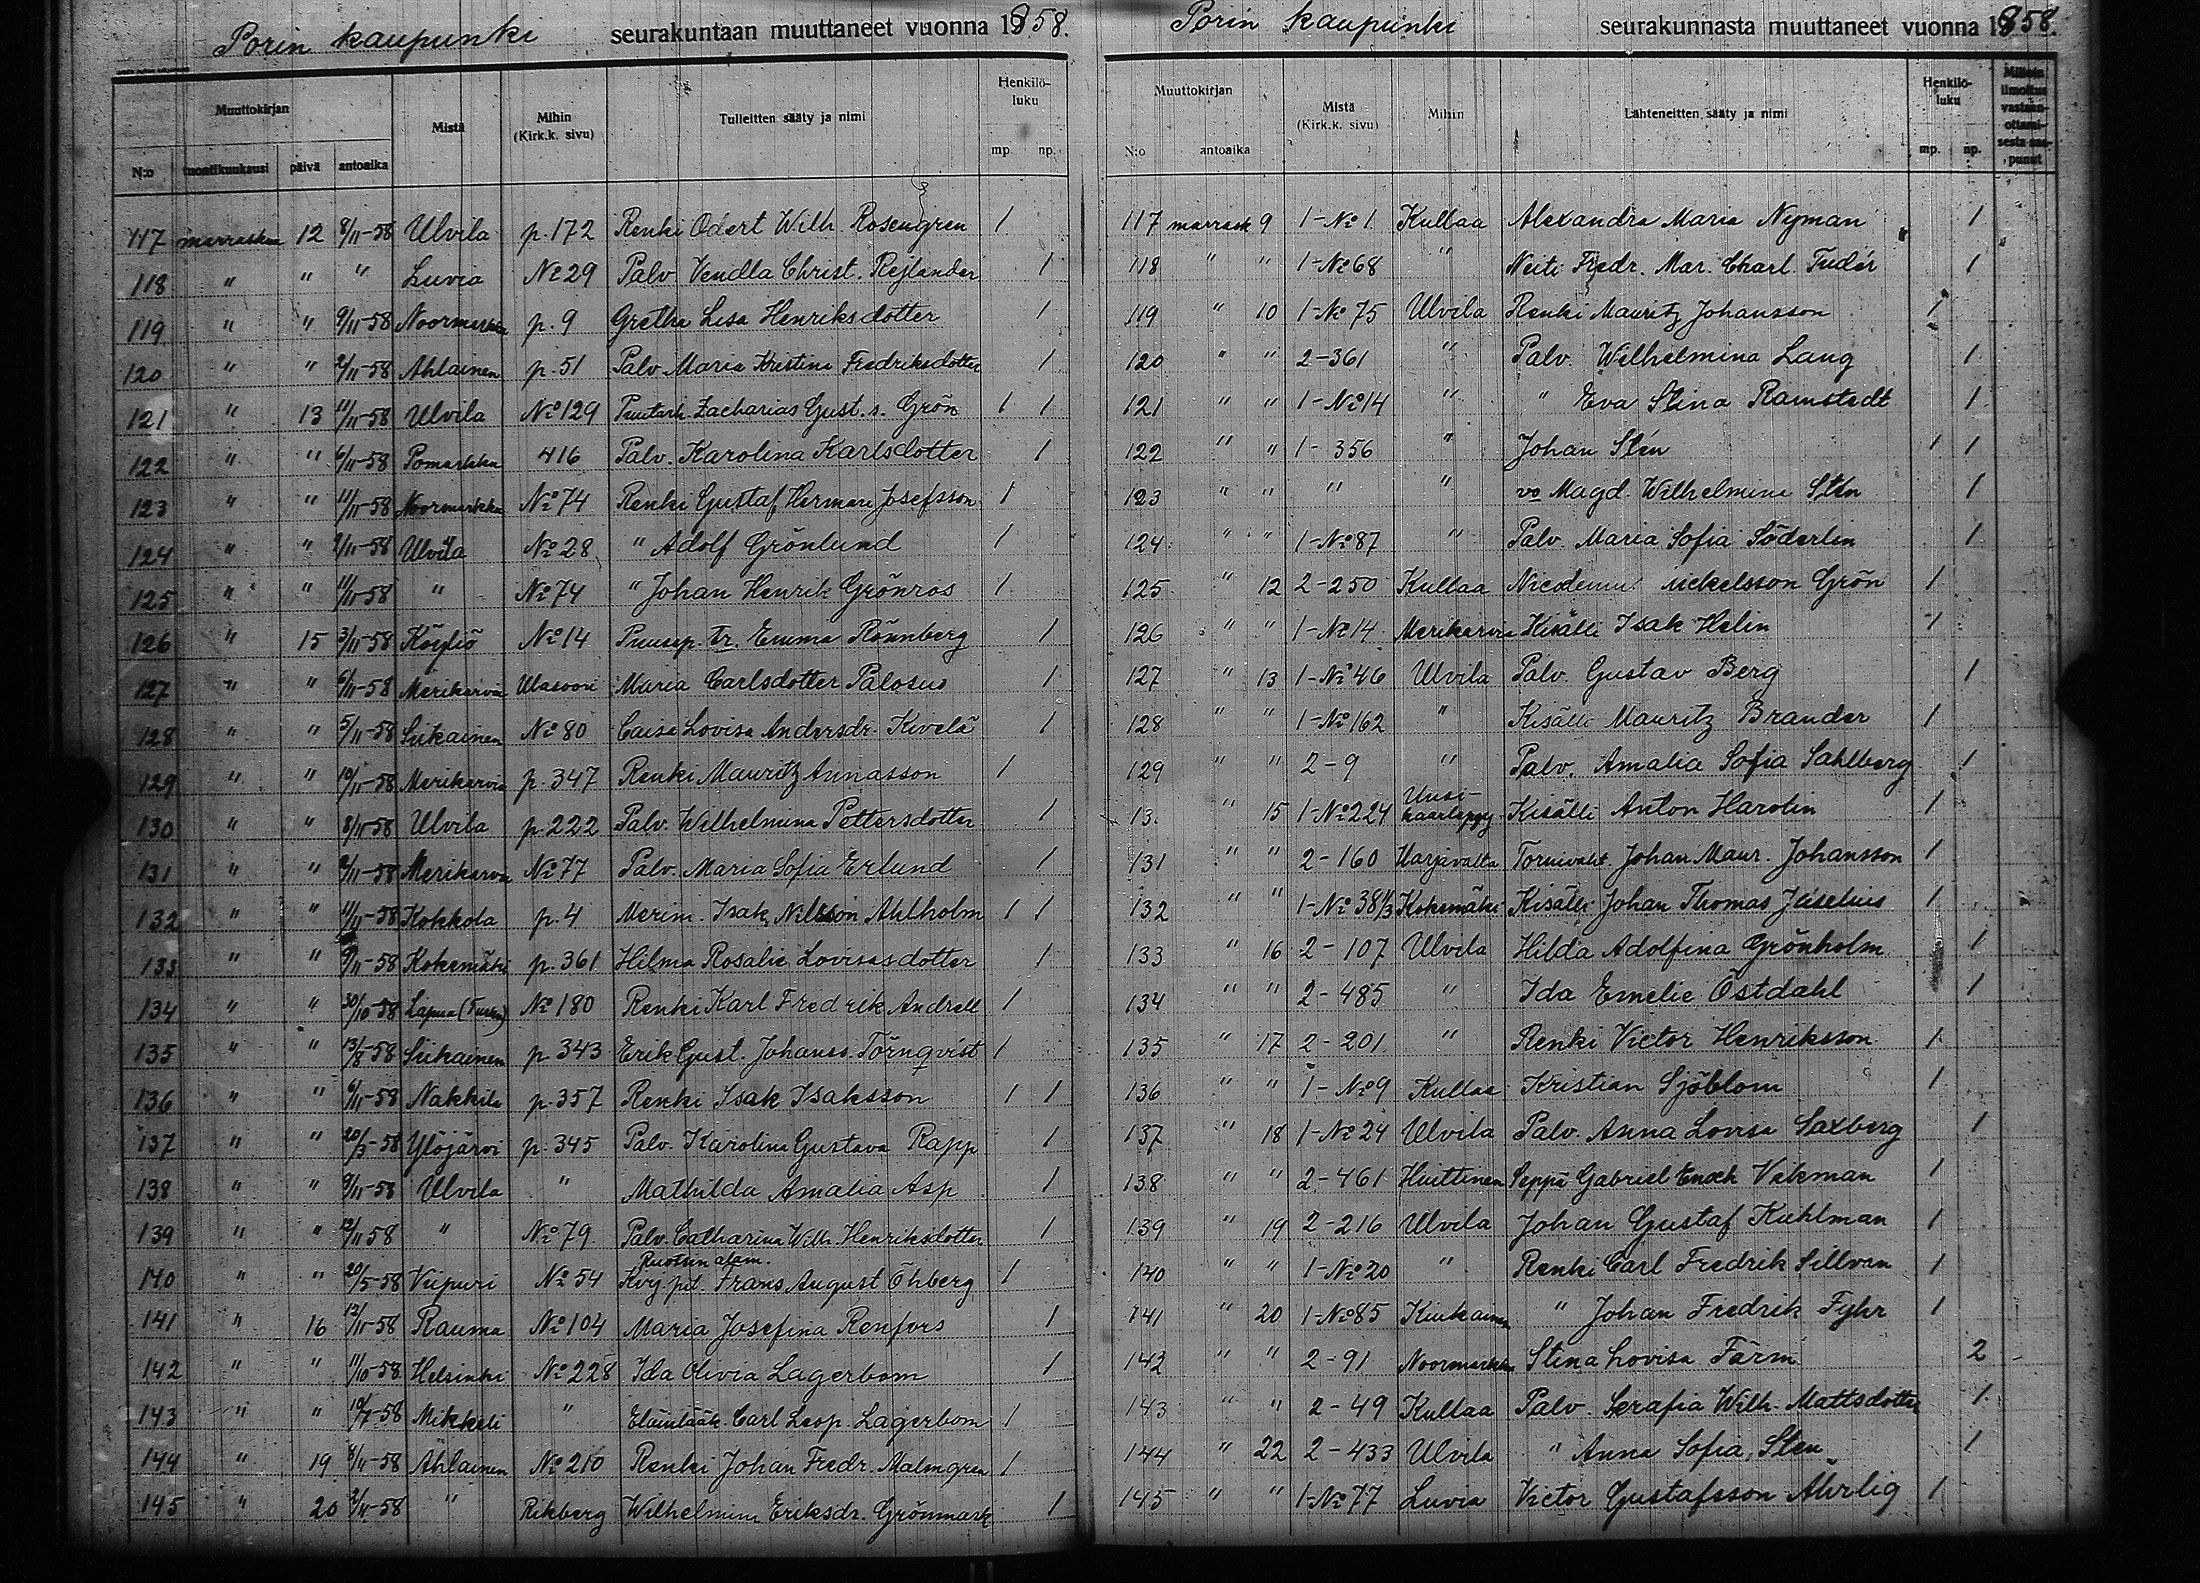 Porin kaupunki seurakuntaan muuttaneet vuonna 1858.
Muuttokirjan Mistä Mihin (Kirk.k. sivu) Tulleitten sääty ja nimi Henkilö-luku
N:o kuukausi päivä antoaika mp. np.
117 marraskuu 12 8/11-58 Ulvila p. 172 Renki Odert Wilh. Rosengren 1
118 " " " Luvia No 29 Palv. Vendla Christ. Rejlander 1
119 " " 9/11-58 Noormarkku p. 9 Gretha Lisa Henriksdotter 1
120 " " 2/11-58 Ahlainen p. 51 Palv. Maria Kristina Fredriksdotter 1
121 " 13 11/11-58 Ulvila No 129 Puutarh. Zacharias Gust. s. Grön 1 1
122 " " 6/11-58 Pomarkku 416 Palv. Karolina Karlsdotter 1
123 " " 11/11-58 Noormarkku No 74 Renki Gustaf Herman Josefsson 1
124 " " /11-58 Ulvila No 28 " Adolf Grönlund 1
125 " " 11/11-58 " No 74 " Johan Henrik Grönros 1
126 " 15 3/11-58 Köyliö No 14 Puusep. tr. Emma Rönnberg 1
127 " " 6/11-58 Merikarvia Ulasoori Maria Carlsdotter Palosus 1
128 " " 5/11-58 Siikainen No 80 Caisa Lovisa Andersdr. Kivelä 1
129 " " 10/11-58 Merikarvia p. 347 Renki Mauritz Annasson 1
130 " " 8/11-58 Ulvila p. 222 Palv. Wilhelmina Pettersdotter 1
131 " " /11-58 Merikarvia No 77 Palv. Maria Sofia Erlund 1
132 " " 11/11-58 Kokkola p. 4 Merim. Isak Nilsson Ahlholm 1 1
133 " " 9/11-58 Kokemäki p. 361 Hilma Rosalie Lovisasdotter 1
134 " " 30/10-58 Lapua (Turku) No 180 Renki Karl Fredrik Andrell 1
135 " " 13/8-58 Siikainen p. 343 Erik Gust. Johanss. Törnqvist 1
136 " " 6/11-58 Nakkila p. 357 Renki Isak Isaksson 1 1
137 " " 20/3-58 Ylöjärvi p. 345 Palv. Karolina Gustava Rapp 1
138 " " 9/11-58 Ulvila " Mathilda Amalia Asp 1
139 " " 12/11 58 " No 79 Palv. Catharina Wilh. Henriksdotter 1
Ruotsin alam.
140 " " 20/5-58 Viipuri No 54 Kvg. pit. Frans August Öhberg 1
141 " 16 12/11-58 Rauma No 104 Maria Josefina Renfors 1
142 " " 11/10-58 Helsinki No 228 Ida Olivia Lagerbom 1
143 " " 10/7-58 Mikkeli " Eläinlääk. Carl Leop. Lagerbom 1
144 " 19 8/11-58 Ahlainen No 210 Renki Johan Fredr. Malmgren 1
145 " 20 2/11-58 " Rikberg Wilhelmina Eriksdr. Grönmark 1
Porin kaupunki seurakunnasta muuttaneet vuonna 1858.
Muuttokirjan Mistä (Kirk.k. sivu) Mihin Lähteneitten sääty ja nimi Henkilö-luku Milloin ilmoitus vastaan-ottami-sesta saa-punut
N:o antoaika mp. np.
117 marrask 9 1-No 1 Kullaa Alexandra Maria Nyman 1
118 " " 1-No 68 " Neiti Fredr. Mar. Charl. Tudér 1
119 " 10 1-No 75 Ulvila Renki Mauritz Johansson 1
120 " " 2-361 " Palv. Wilhelmina Lang 1
121 " " 1-No 14 " " Eva Stina Ramstedt 1
122 " " 1-356 " Johan Stén 1 1
123 " " " " vo Magd. Wilhelmina Stén 1
124 " " 1-No 87 " Palv. Maria Sofia Söderlin 1
125 " 12 2-250 Kullaa Nicodemus Grön 1
126 " " 1-No 14 Merikarvia Kisälli Isak Helin 1
127 " 13 1-No 46 Ulvila Palv. Gustav Berg 1
128 " " 1-No 162 " Kisälli Mauritz Brander 1
129 " " 2-9 " Palv. Amalia Sofia Sahlberg 1
13. " 15 1-No 224 Uusi-kaarlepyy Kisälli Anton Harolin 1
131 " " 2-160 Harjavalta Tornivaht. Johan Maur. Johansson 1
132 " " 1-No 38 1/3 Kokemäki Kisälli Johan Thomas Juselius 1
133 " 16 2-107 Ulvila Hilda Adolfina Grönholm 1
134 " " 2-485 " Ida Emelie Östdahl 1
135 " 17 2-201 " Renki Victor Henriksson 1
136 " " 1-No 9 Kullaa Kristian Sjöblom 1
137 " 18 1-No 24 Ulvila Palv. Anna Lovisa Saxberg 1
138 " " 2-461 Huittinen Seppä Gabriel Enoch Vikman 1
139 " 19 2-216 Ulvila Johan Gustaf Kuhlman 1
140 " " 1-No 20 " Renki Carl Fredrik Sillvan 1
141 " 20 1-No 85 Kiukainen " Johan Fredrik Fyhr 1
142 " " 2-91 Noormarkku Stina Lovisa Färm 2
143 " " 2-49 Kullaa Palv. Serafia Wilh. Mattsdotter 1
144 " 22 2-433 Ulvila " Anna Sofia Sten 1
145 " " 1-No 77 Luvia Victor Gustafsson Ährlig 1